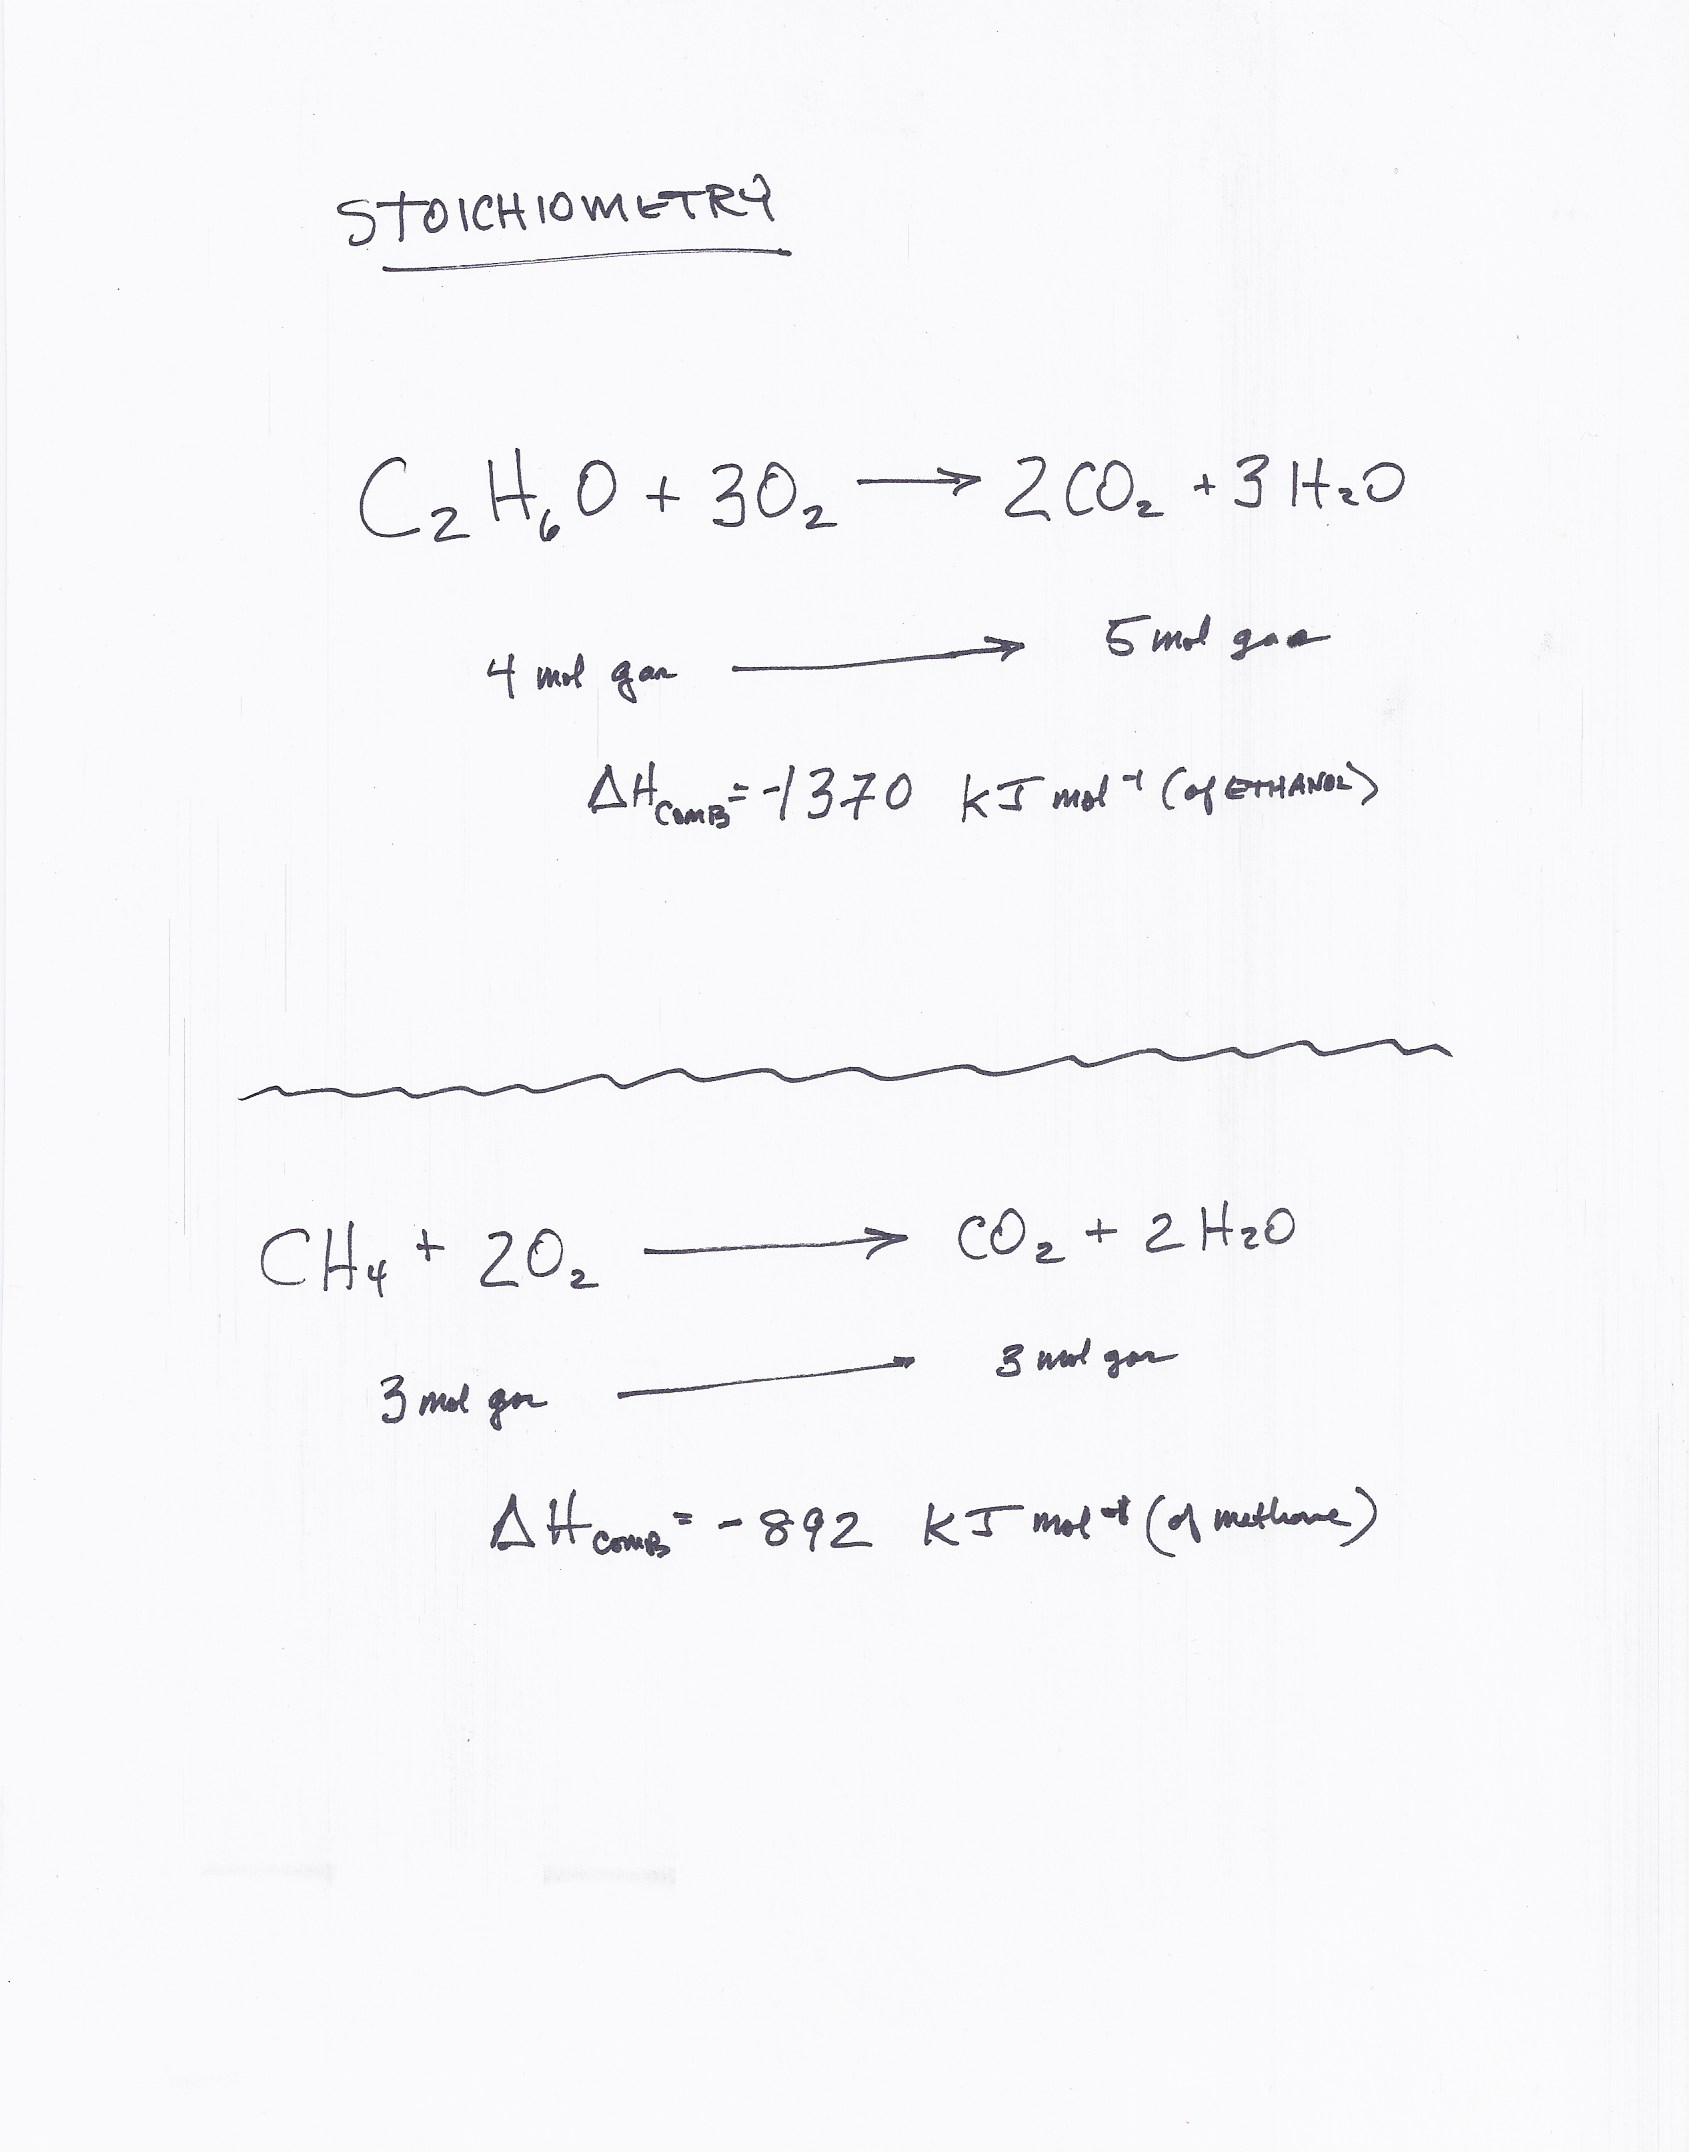 STOICHIOMETRY
C₂H₆O + 3O₂ → 2CO₂ + 3H₂O
4 mol gas → 5 mol gas
ΔH_COMB = -1370 kJ mol⁻¹ (of ETHANOL)
CH₄ + 2O₂ → CO₂ + 2H₂O
3 mol gas → 3 mol gas
ΔH_COMB = -892 kJ mol⁻¹ (of methane)